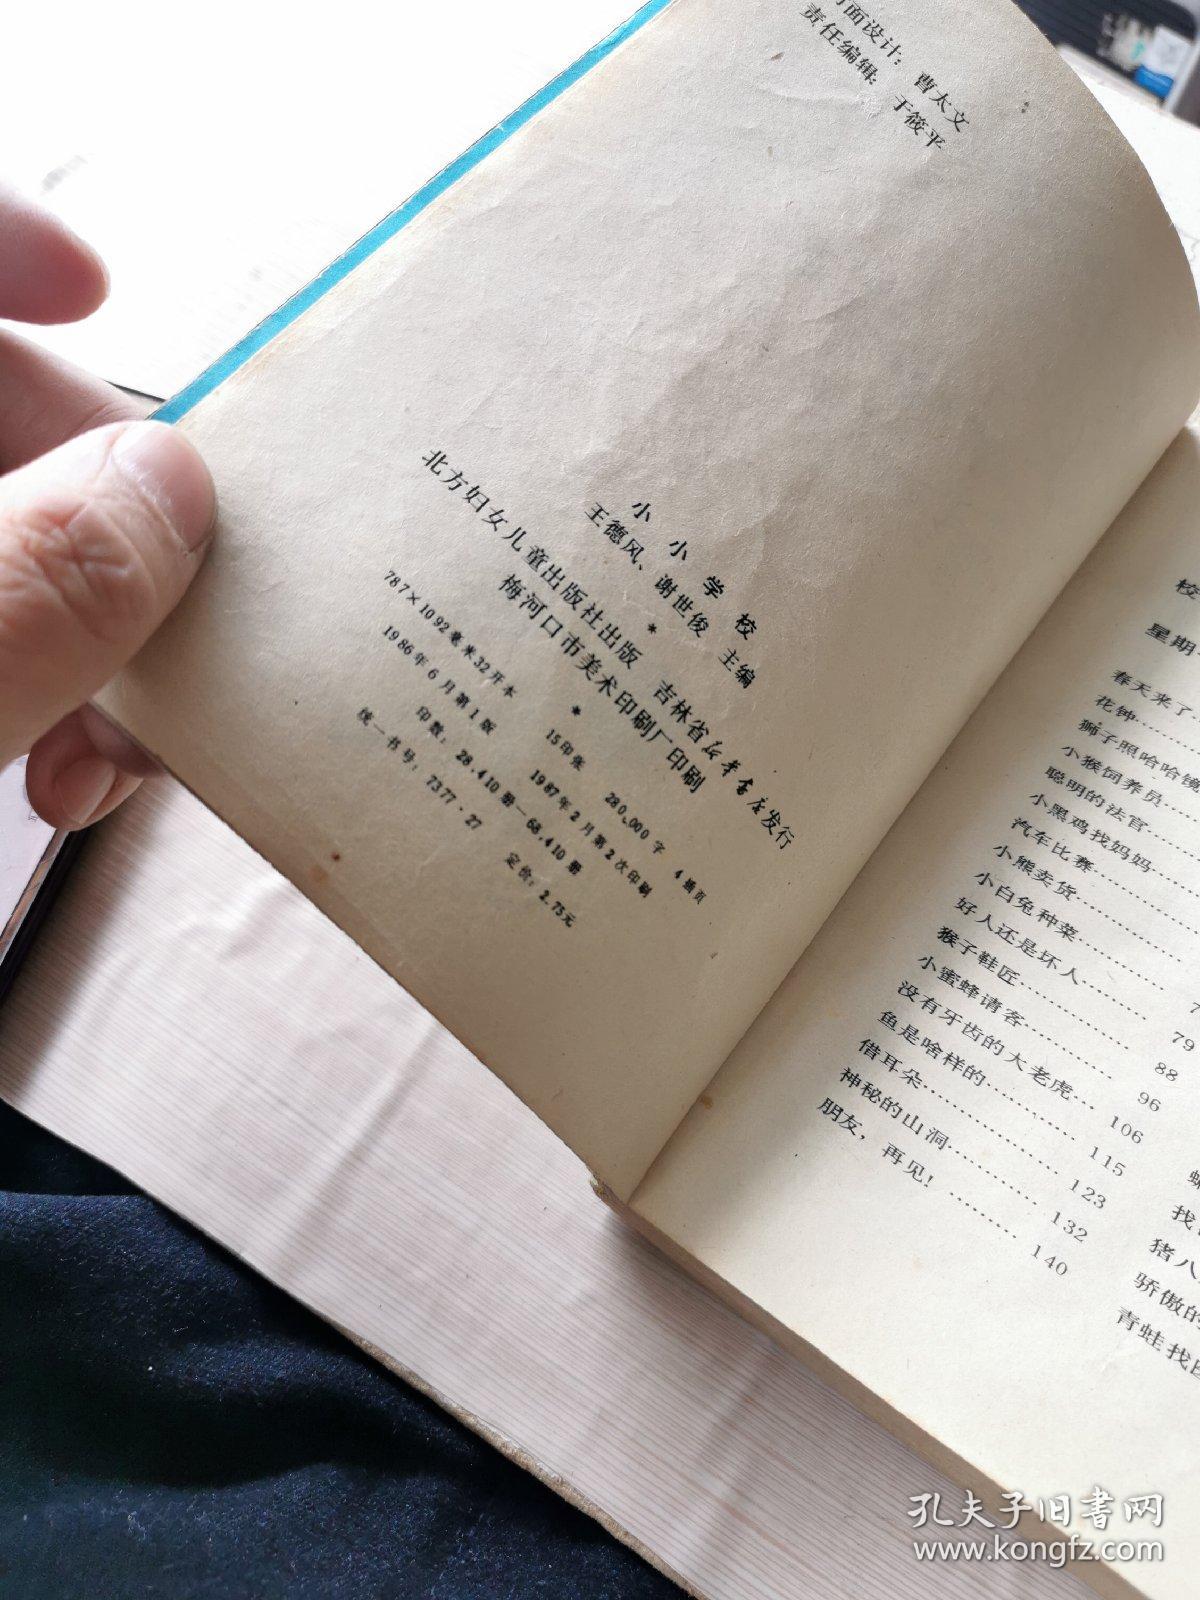 封面设计：曹太文
责任编辑：于筱平
小小学校
王德风、谢世俊 主编
*
北方妇女儿童出版社出版 吉林省新华书店发行
梅河口市美术印刷厂印刷
*
787×1092毫米32开本 15印张 280,000字 4插页
1986年6月第1版 1987年2月第2次印刷
印数：28,410册—68,410册
统一书号：7377·27 定价：2.75元
校
星期
春天来了
花钟
狮子照哈哈镜
小猴饲养员
聪明的法官
小黑鸡找妈妈
汽车比赛
小熊卖货
小白兔种菜
好人还是坏人 7
猴子鞋匠 79
小蜜蜂请客 88
没有牙齿的大老虎 96
鱼是啥样的 106
借耳朵 115
神秘的山洞 123
朋友，再见！ 132
140
找
猪八
骄傲的
青蛙找
孔夫子旧书网
www.kongfz.com